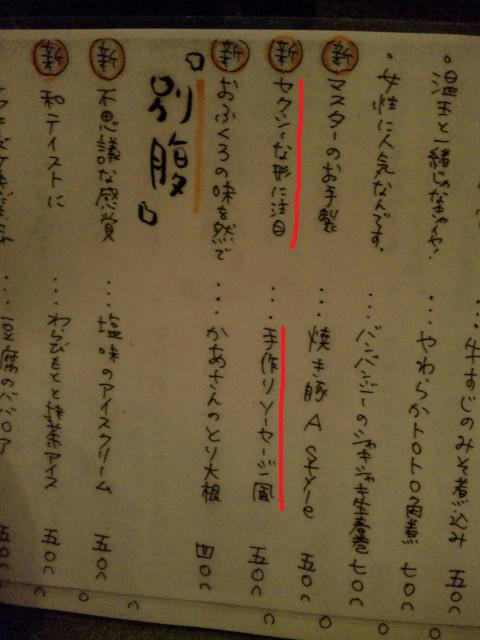 牛すじのみそ煮込み 五〇〇
・温玉と一緒じゃなきゃイヤ! ・・・やわらかトロトロ角煮 七〇〇
・女性に人気なんです。 ・・・バンバンジーのシャキシャキ生春巻 七〇〇
新 マスターのお手製 ・・・焼き豚 A style 五〇〇
新 セクシーな形に注目 ・・・手作りソーセージ風 五〇〇
新 おふくろの味を然で ・・・かあさんのとり大根 四〇〇
「別腹」
新 不思議な感覚 ・・・塩味のアイスクリーム 五〇〇
新 和テイストに ・・・わらびもちと抹茶アイス 五〇〇
・・・豆腐のババロア 五〇〇